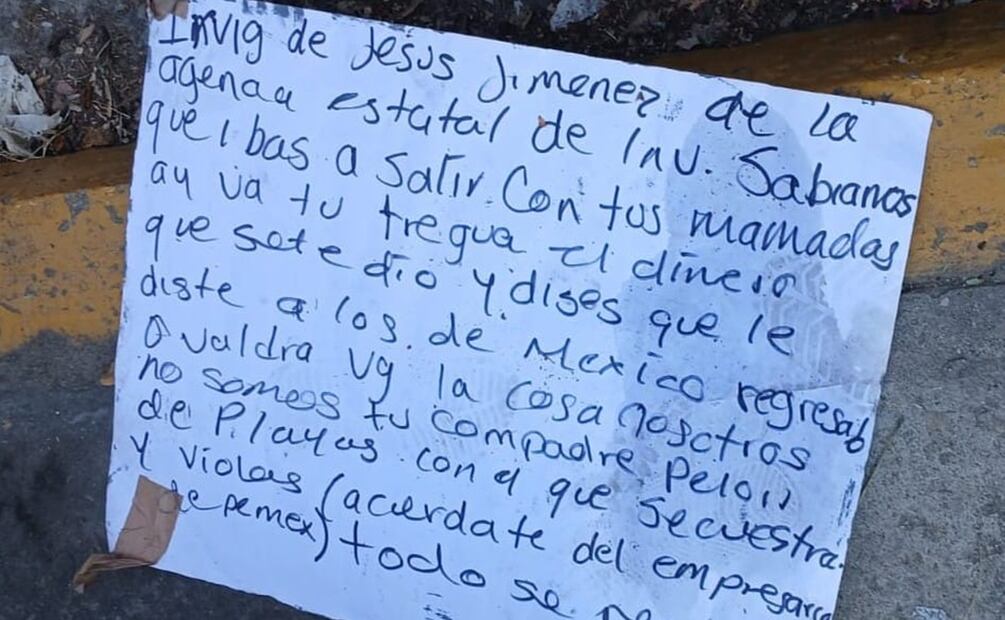 Invig de Jesus Jimenez de la
agencia estatal de Inv. Sabianos
que ibas a Salir Con tus mamadas
ay va tu tregua el dinero
que sete dio y dises que le
diste a los de Mexico regresalo
O valdra Vg la cosa nosotros
no somos tu compadre Pelon
de Playas con el que Secuestras
y violas (acuerdate del empresario
de pemex) todo se